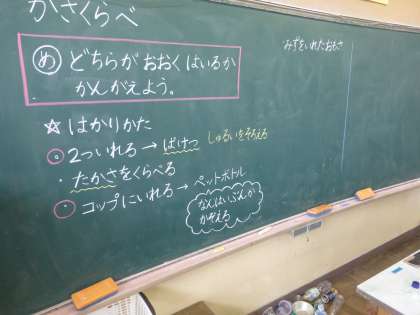 かさくらべ
め どちらがおおくはいるか
かんがえよう。
☆ はかりかた
◎ 2ついれる→ばけつ しゅるいをそろえる
・たかさをくらべる
○・コップにいれる→ペットボトル
なんばいぶんか
かぞえる
みずをいれたおもさ